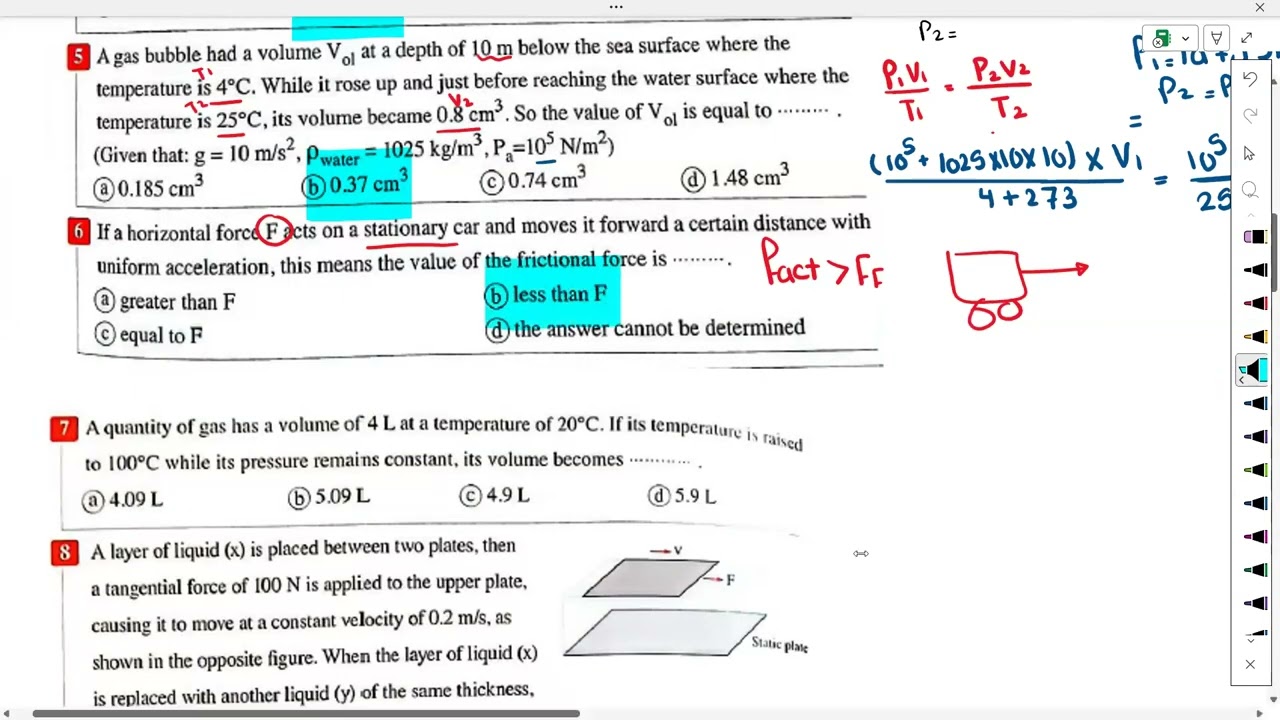 5 A gas bubble had a volume Vol at a depth of 10 m below the sea surface where the
T1
temperature is 4°C. While it rose up and just before reaching the water surface where the
T2 V2
temperature is 25°C, its volume became 0.8 cm³. So the value of Vol is equal to ········· .
(Given that: g = 10 m/s², ρwater = 1025 kg/m³, Pa=10⁵ N/m²)
ⓐ 0.185 cm³ ⓑ 0.37 cm³ ⓒ 0.74 cm³ ⓓ 1.48 cm³
P2=
P1V1/T1 = P2V2/T2
P2 =
=
(10⁵ + 1025×10×10) × V1 / 4+273 = 10⁵
6 If a horizontal force F acts on a stationary car and moves it forward a certain distance with
uniform acceleration, this means the value of the frictional force is ········· .
ⓐ greater than F ⓑ less than F
ⓒ equal to F ⓓ the answer cannot be determined
7 A quantity of gas has a volume of 4 L at a temperature of 20°C. If its temperature is raised
to 100°C while its pressure remains constant, its volume becomes ··········· .
ⓐ 4.09 L ⓑ 5.09 L ⓒ 4.9 L ⓓ 5.9 L
8 A layer of liquid (x) is placed between two plates, then
a tangential force of 100 N is applied to the upper plate,
causing it to move at a constant velocity of 0.2 m/s, as
shown in the opposite figure. When the layer of liquid (x)
is replaced with another liquid (y) of the same thickness,
V
F
Static plate